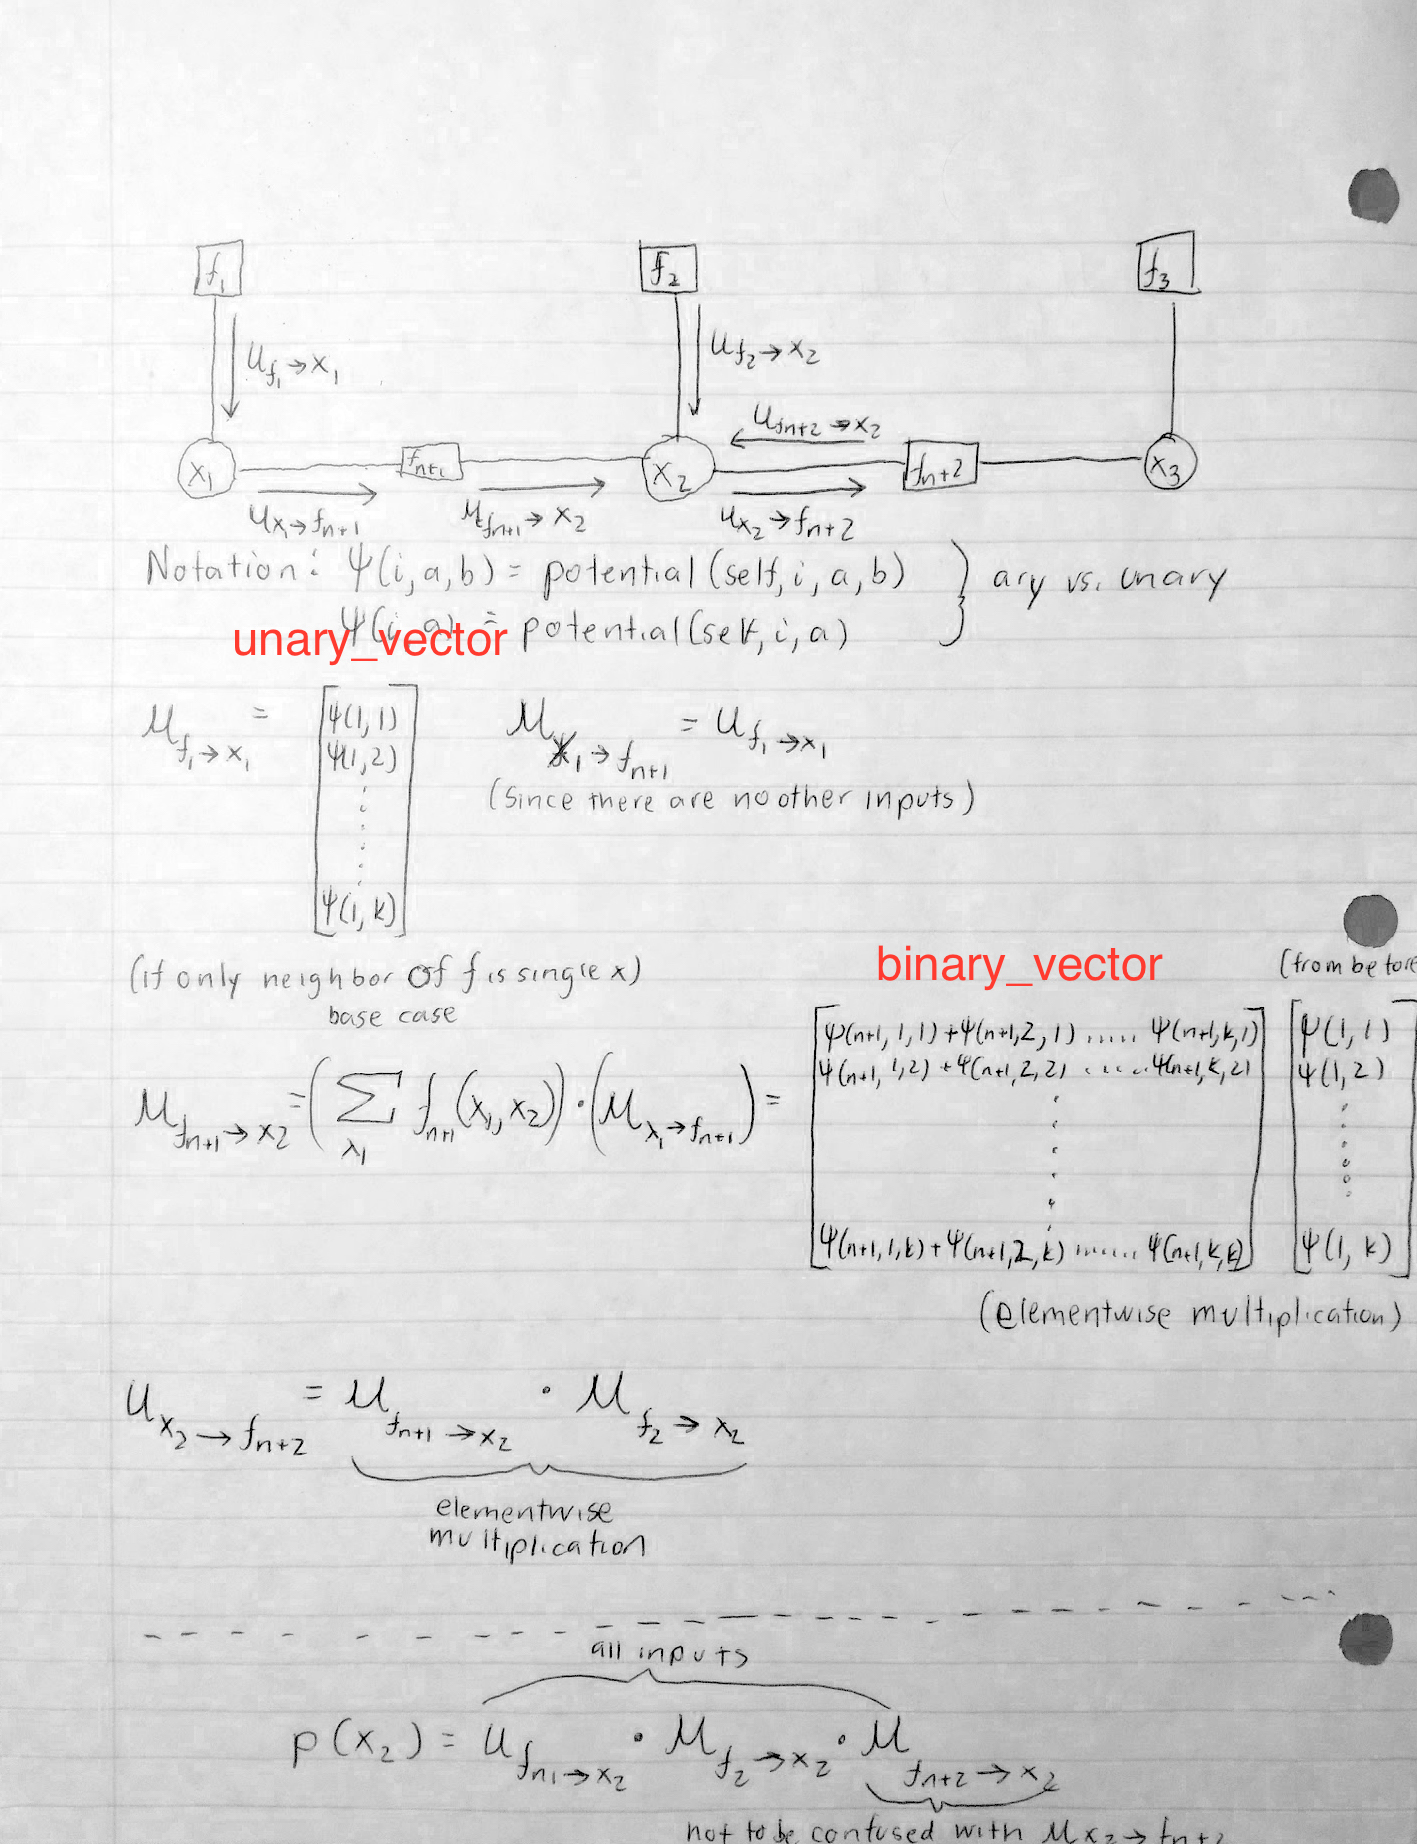 f₁ f₂ f₃
μ_f₁→x₁ μ_f₂→x₂
μ_fn+2→x₂
x₁ f_n+1 x₂ f_n+2 x₃
μ_x₁→f_n+1 μ_f_n+1→x₂ μ_x₂→f_n+2
Notation: Ψ(i, a, b) = potential(self, i, a, b) } ary vs. unary
Ψ(i, a) = potential(self, i, a)
unary_vector
μ_f₁→x₁ = [Ψ(1, 1) μ_x₁→f_n+1 = μ_f₁→x₁
Ψ(1, 2)
(since there are no other inputs)
⋮
Ψ(1, k)]
(if only neighbor of f is single x)
base case
binary_vector
(from before
μ_f_n+1→x₂ = (∑_x₁ f_n+1(x₁, x₂)) · (μ_x₁→f_n+1) =
[Ψ(n+1, 1, 1) + Ψ(n+1, 2, 1) ..... Ψ(n+1, k, 1)] [Ψ(1, 1)
Ψ(n+1, 1, 2) + Ψ(n+1, 2, 2) ..... Ψ(n+1, k, 2) Ψ(1, 2)
⋮ ⋮
Ψ(n+1, 1, k) + Ψ(n+1, 2, k) ...... Ψ(n+1, k, k)] Ψ(1, k)]
(elementwise multiplication)
μ_x₂→f_n+2 = μ_f_n+1→x₂ · μ_f₂→x₂
elementwise
multiplication
all inputs
p(x₂) = μ_f_n1→x₂ · μ_f₂→x₂ · μ_f_n+2→x₂
not to be confused with μ_x₂→f_n+2